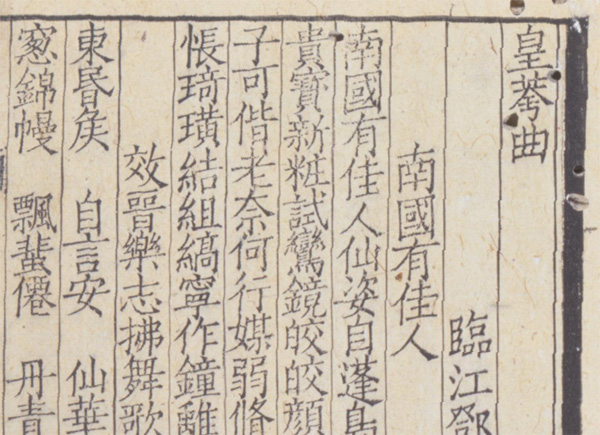 皇荂曲
臨江鄧
南國有佳人
南國有佳人仙姿自蓬島
貴寳新粧試鸞鏡皎皎顔
子可偕老奈何行媒弱脩
悵琦璜結組縞寧作鐘離
效晉樂志拂舞歌
東昏矦　自言安　仙華
窻錦幔　飄蜚僊　丹青